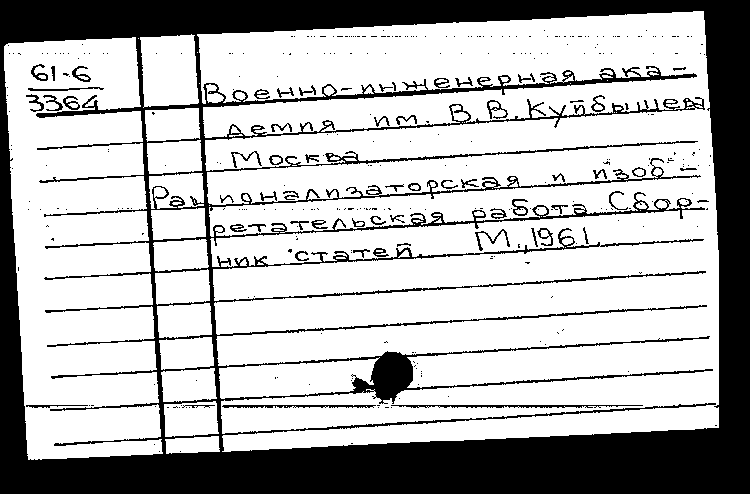 61-6
3364
Военно-инженерная ака-
демия им. В.В.Куйбышева
Москва
Рационализаторская и изоб-
ретательская работа. Сбор-
ник статей. М., 1961.